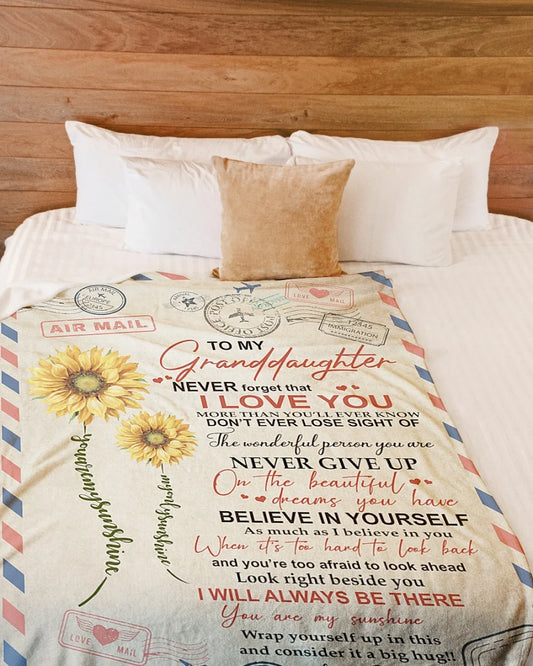 AIR MAIL
EUROPE
12345
POST OFFICE
POST OFFICE
LOVE MAIL
12345
IMMIGRATION
AIR MAIL
TO MY
Granddaughter
NEVER forget that
I LOVE YOU
MORE THAN YOU'LL EVER KNOW
DON'T EVER LOSE SIGHT OF
The wonderful person you are
NEVER GIVE UP
On the beautiful
dreams you have
BELIEVE IN YOURSELF
As much as I believe in you
When it's too hard to look back
and you're too afraid to look ahead
Look right beside you
I WILL ALWAYS BE THERE
You are my sunshine
Wrap yourself up in this
and consider it a big hug!!
youaremysunshine
myonlysunshine
LOVE MAIL